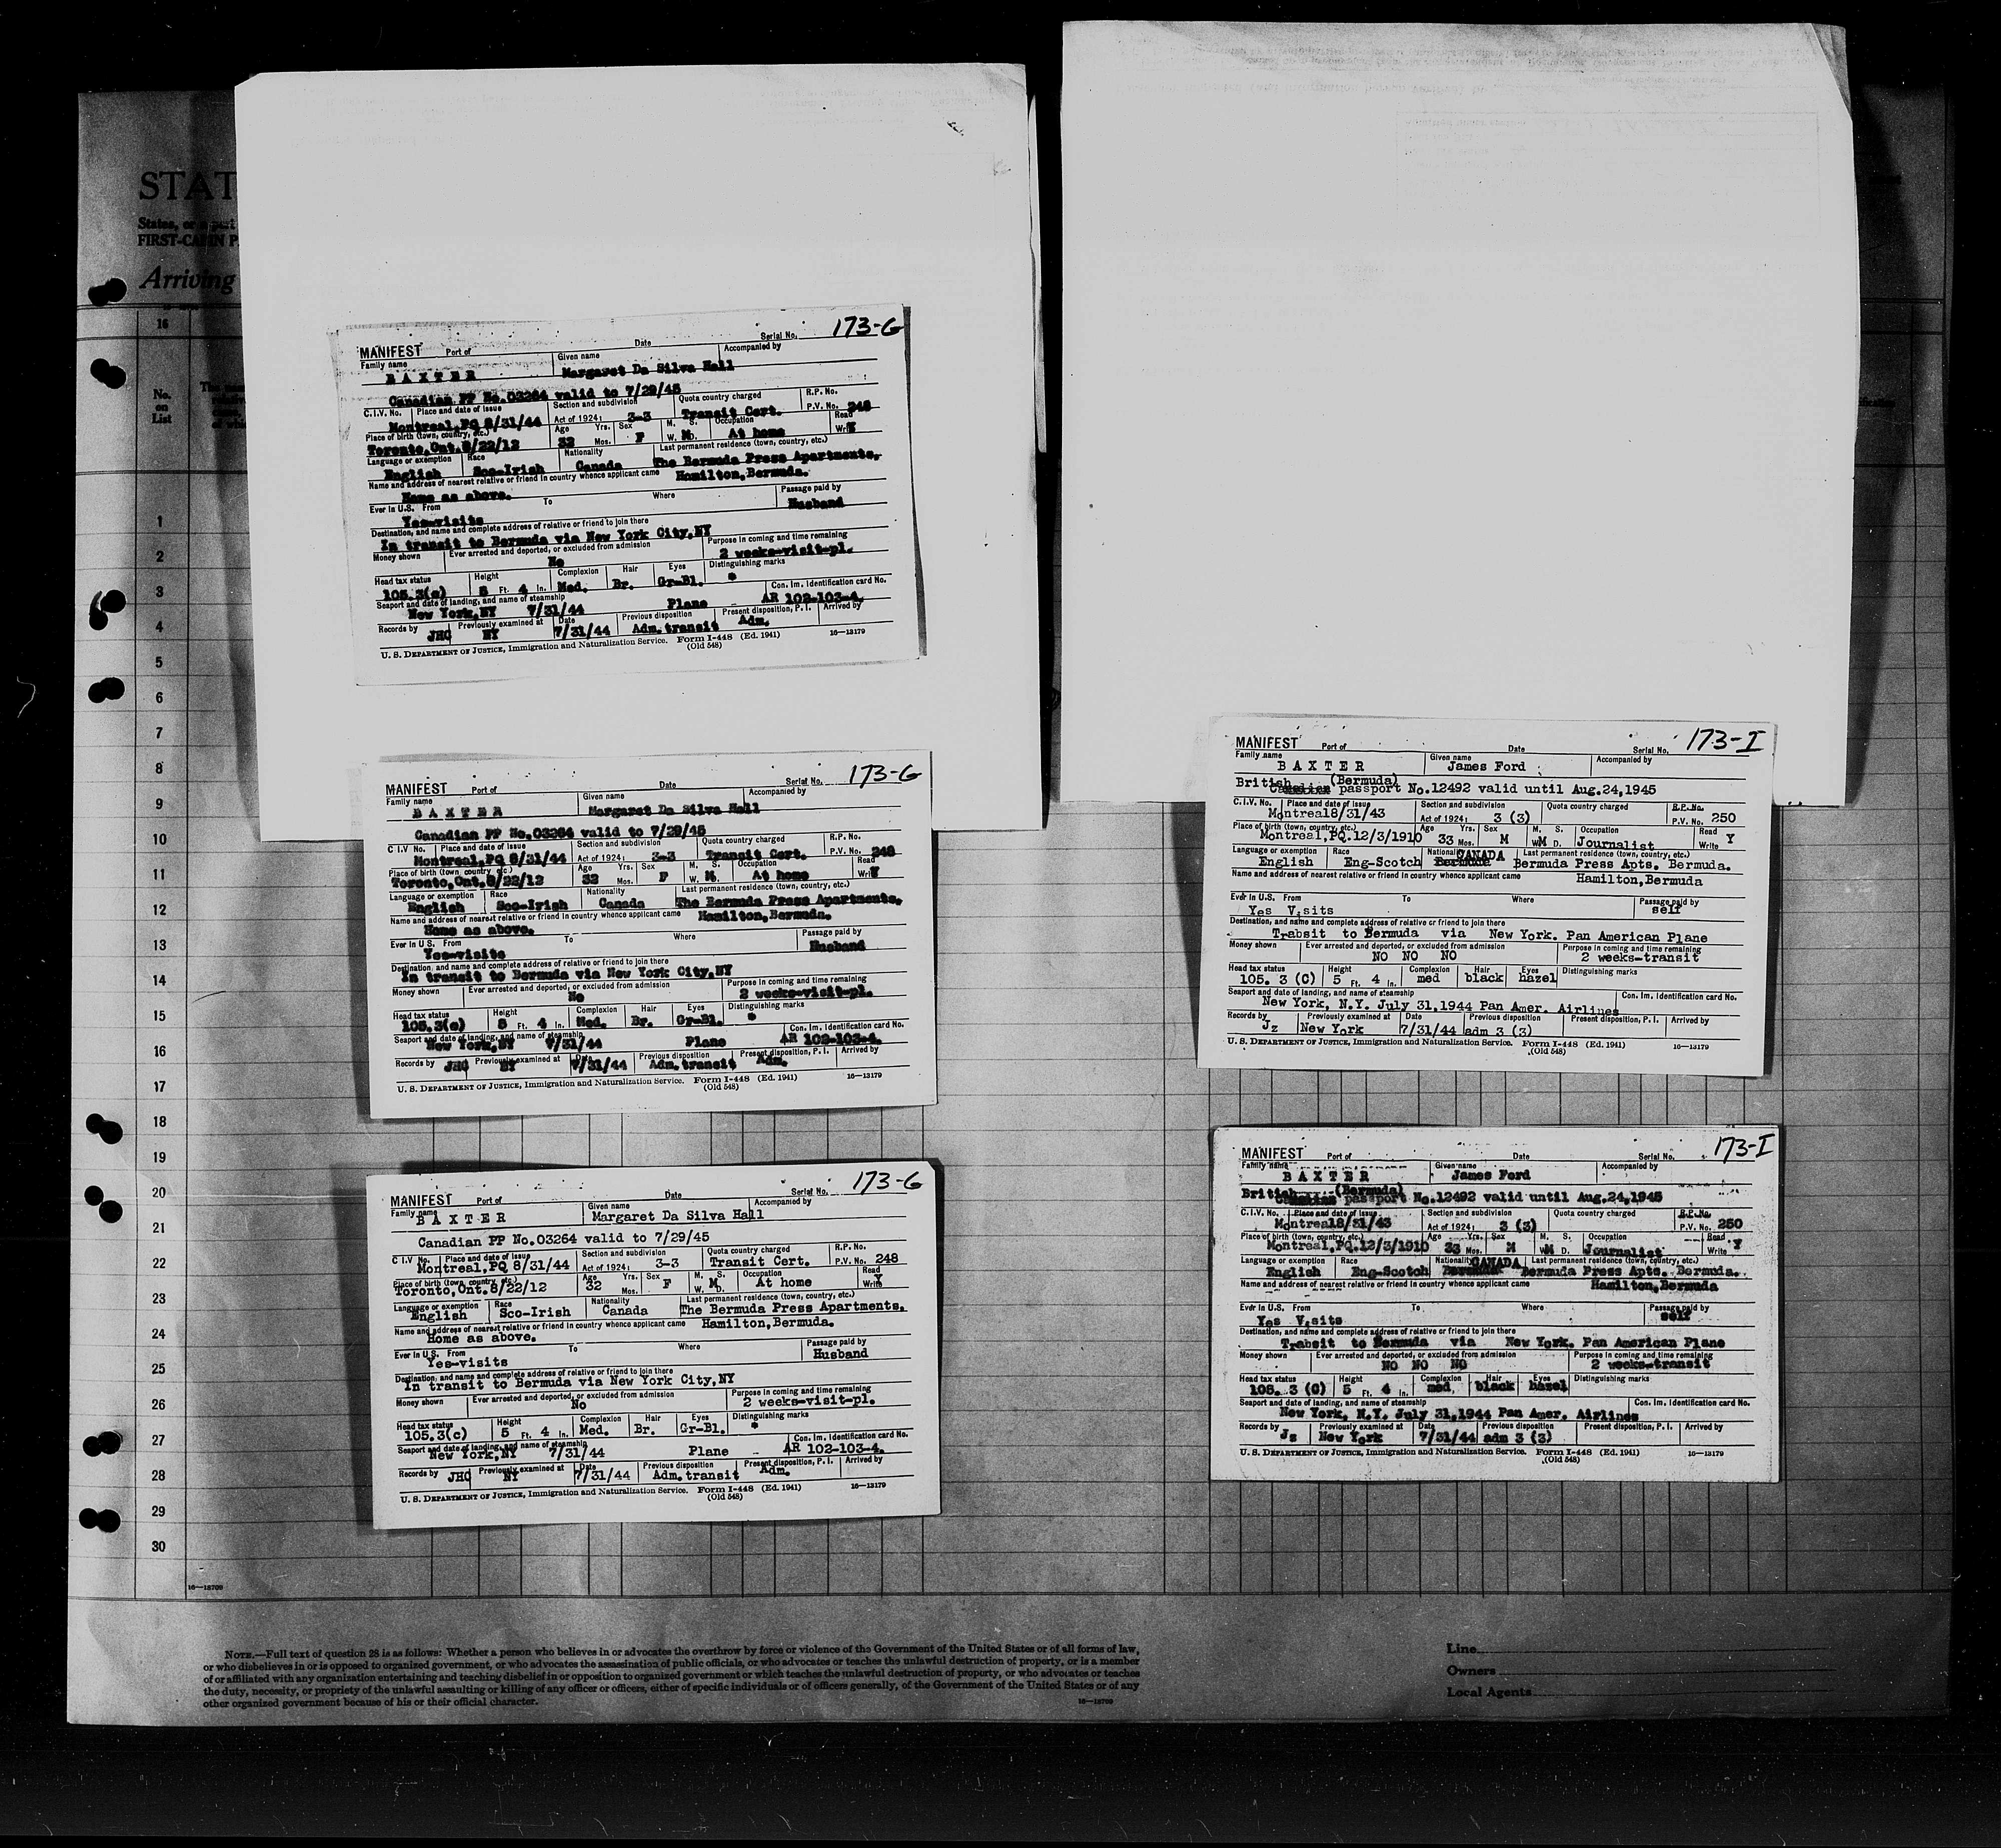 STAT
States, or a part
FIRST-CABIN P
Arriving
16
No.
on
List
1
2
3
4
5
6
7
8
9
10
11
12
13
14
15
16
17
18
19
20
21
22
23
24
25
26
27
28
29
30
16—18709
173-G
MANIFEST Port of Date Serial No.
Family name Given name Accompanied by
BAXTER Margaret Da Silva Hall
Canadian PP No.03264 valid to 7/29/45
C.I.V. No. Place and date of issue Section and subdivision Quota country charged R.P. No.
Montreal,PQ 8/31/44 Act of 1924: 3-3 Transit Cert. P.V. No. 248
Place of birth (town, country, etc.) Age Yrs. Sex M. S. Occupation Read
Toronto,Ont.8/22/12 32 Mos. F W. M D. At home Write Y
Language or exemption Race Nationality Last permanent residence (town, country, etc.)
English Sco-Irish Canada The Bermuda Press Apartments.
Name and address of nearest relative or friend in country whence applicant came Hamilton,Bermuda.
Home as above.
Ever in U.S. From To Where Passage paid by
Yes-visits Husband
Destination, and name and complete address of relative or friend to join there
In transit to Bermuda via New York City,NY
Money shown Ever arrested and deported, or excluded from admission Purpose in coming and time remaining
No 2 weeks-visit-pl.
Head tax status Height Complexion Hair Eyes Distinguishing marks
105.3(c) 5 Ft. 4 In. Med. Br. Gr-Bl. *
Seaport and date of landing, and name of steamship Con. Im. Identification card No.
New York,NY 7/31/44 Plane AR 102-103-4.
Records by Previously examined at Date Previous disposition Present disposition, P. I. Arrived by
JHC NY 7/31/44 Adm.transit Adm.
U. S. DEPARTMENT OF JUSTICE, Immigration and Naturalization Service. Form I-448 (Ed. 1941) 16—13179
(Old 548)
173-G
MANIFEST Port of Date Serial No.
Family name Given name Accompanied by
BAXTER Margaret Da Silva Hall
Canadian PP No.03264 valid to 7/29/45
C I.V No. Place and date of issue Section and subdivision Quota country charged R.P. No.
Montreal,PQ 8/31/44 Act of 1924: 3-3 Transit Cert. P.V. No. 248
Place of birth (town country etc) Age Yrs. Sex M. S. Occupation Read
Toronto,Ont.8/22/12 32 Mos. F W. M D. At home Write Y
Language or exemption Race Nationality Last permanent residence (town, country, etc.)
English Sco-Irish Canada The Bermuda Press Apartments.
Name and address of nearest relative or friend in country whence applicant came Hamilton,Bermuda.
Home as above.
Ever in U S. From To Where Passage paid by
Yes-visits Husband
Destination, and name and complete address of relative or friend to join there
In transit to Bermuda via New York City,NY
Money shown Ever arrested and deported, or excluded from admission Purpose in coming and time remaining
No 2 weeks-visit-pl.
Head tax status Height Complexion Hair Eyes Distinguishing marks
105.3(c) 5 Ft. 4 In. Med. Br. Gr-Bl. *
Seaport and date of landing, and name of steamship Con. Im. Identification card No.
New York,NY 7/31/44 Plane AR 102-103-4.
Records by Previously examined at Date Previous disposition Present disposition, P. I. Arrived by
JHC NY 7/31/44 Adm.transit Adm.
U. S. DEPARTMENT OF JUSTICE, Immigration and Naturalization Service. Form I-448 (Ed. 1941) 16—13179
(Old 548)
173-G
MANIFEST Port of Date Serial No.
Family name Given name Accompanied by
BAXTER Margaret Da Silva Hall
Canadian PP No.03264 valid to 7/29/45
C I.V No. Place and date of issue Section and subdivision Quota country charged R.P. No.
Montreal,PQ 8/31/44 Act of 1924: 3-3 Transit Cert. P.V. No. 248
Place of birth (town, country, etc.) Age Yrs. Sex M. S. Occupation Read
Toronto,Ont.8/22/12 32 Mos. F W. M D. At home Write Y
Language or exemption Race Nationality Last permanent residence (town, country, etc.)
English Sco-Irish Canada The Bermuda Press Apartments.
Name and address of nearest relative or friend in country whence applicant came Hamilton,Bermuda.
Home as above.
Ever in U.S. From To Where Passage paid by
Yes-visits Husband
Destination, and name and complete address of relative or friend to join there
In transit to Bermuda via New York City,NY
Money shown Ever arrested and deported, or excluded from admission Purpose in coming and time remaining
No 2 weeks-visit-pl.
Head tax status Height Complexion Hair Eyes Distinguishing marks
105.3(c) 5 Ft. 4 In. Med. Br. Gr-Bl. *
Seaport and date of landing, and name of steamship Con. Im. Identification card No.
New York,NY 7/31/44 Plane AR 102-103-4.
Records by Previously examined at Date Previous disposition Present disposition, P. I. Arrived by
JHC NY 7/31/44 Adm.transit Adm.
U. S. DEPARTMENT OF JUSTICE, Immigration and Naturalization Service. Form I-448 (Ed. 1941) 16—13179
(Old 548)
173-I
MANIFEST Port of Date Serial No.
Family name Given name Accompanied by
BAXTER James Ford
British Canadian (Bermuda) passport No.12492 valid until Aug.24,1945
C.I.V. No. Place and date of issue Section and subdivision Quota country charged R.P. No.
Montreal8/31/43 Act of 1924: 3 (3) P.V. No. 250
Place of birth (town, country, etc.) Age Yrs. Sex M. S. Occupation Read
Montreal,PQ.12/3/1910 33 Mos. M WM D. Journalist Write Y
Language or exemption Race Nationality CANADA Last permanent residence (town, country, etc.)
English Eng-Scotch Bermuda Bermuda Press Apts. Bermuda.
Name and address of nearest relative or friend in country whence applicant came Hamilton,Bermuda
Ever in U.S. From To Where Passage paid by
Yes V.sits self
Destination, and name and complete address of relative or friend to join there
Trabsit to Bermuda via New York. Pan American Plane
Money shown Ever arrested and deported, or excluded from admission Purpose in coming and time remaining
NO NO NO 2 weeks-transit
Head tax status Height Complexion Hair Eyes Distinguishing marks
105. 3 (C) 5 Ft. 4 In. med black hazel
Seaport and date of landing, and name of steamship Con. Im. Identification card No.
New York, N.Y. July 31,1944 Pan Amer. Airlines
Records by Previously examined at Date Previous disposition Present disposition, P. I. Arrived by
Jz New York 7/31/44 adm 3 (3)
U. S. DEPARTMENT OF JUSTICE, Immigration and Naturalization Service. Form I-448 (Ed. 1941) 16—13179
(Old 548)
173-I
MANIFEST Port of Date Serial No.
Family name Given name Accompanied by
BAXTER James Ford
British Canadian (Bermuda) passport No.12492 valid until Aug.24,1945
C.I.V. No. Place and date of issue Section and subdivision Quota country charged R.P. No.
Montreal8/31/43 Act of 1924: 3 (3) P.V. No. 250
Place of birth (town, country, etc.) Age Yrs. Sex M. S. Occupation Read
Montreal,PQ.12/3/1910 33 Mos. M WM D. Journalist Write Y
Language or exemption Race Nationality CANADA Last permanent residence (town, country, etc.)
English Eng-Scotch Bermuda Bermuda Press Apts. Bermuda.
Name and address of nearest relative or friend in country whence applicant came Hamilton,Bermuda
Ever in U.S. From To Where Passage paid by
Yes V.sits self
Destination, and name and complete address of relative or friend to join there
Trabsit to Bermuda via New York. Pan American Plane
Money shown Ever arrested and deported, or excluded from admission Purpose in coming and time remaining
NO NO NO 2 weeks-transit
Head tax status Height Complexion Hair Eyes Distinguishing marks
105. 3 (C) 5 Ft. 4 In. med black hazel
Seaport and date of landing, and name of steamship Con. Im. Identification card No.
New York, N.Y. July 31,1944 Pan Amer. Airlines
Records by Previously examined at Date Previous disposition Present disposition, P. I. Arrived by
Jz New York 7/31/44 adm 3 (3)
U. S. DEPARTMENT OF JUSTICE, Immigration and Naturalization Service. Form I-448 (Ed. 1941) 16—13179
(Old 548)
NOTE.—Full text of question 28 is as follows: Whether a person who believes in or advocates the overthrow by force or violence of the Government of the United States or of all forms of law,
or who disbelieves in or is opposed to organized government, or who advocates the assassination of public officials, or who advocates or teaches the unlawful destruction of property, or is a member
of or affiliated with any organization entertaining and teaching disbelief in or opposition to organized government or which teaches the unlawful destruction of property, or who advocates or teaches
the duty, necessity, or propriety of the unlawful assaulting or killing of any officer or officers, either of specific individuals or of officers generally, of the Government of the United States or of any
other organized government because of his or their official character.
16—18709
Line
Owners
Local Agents